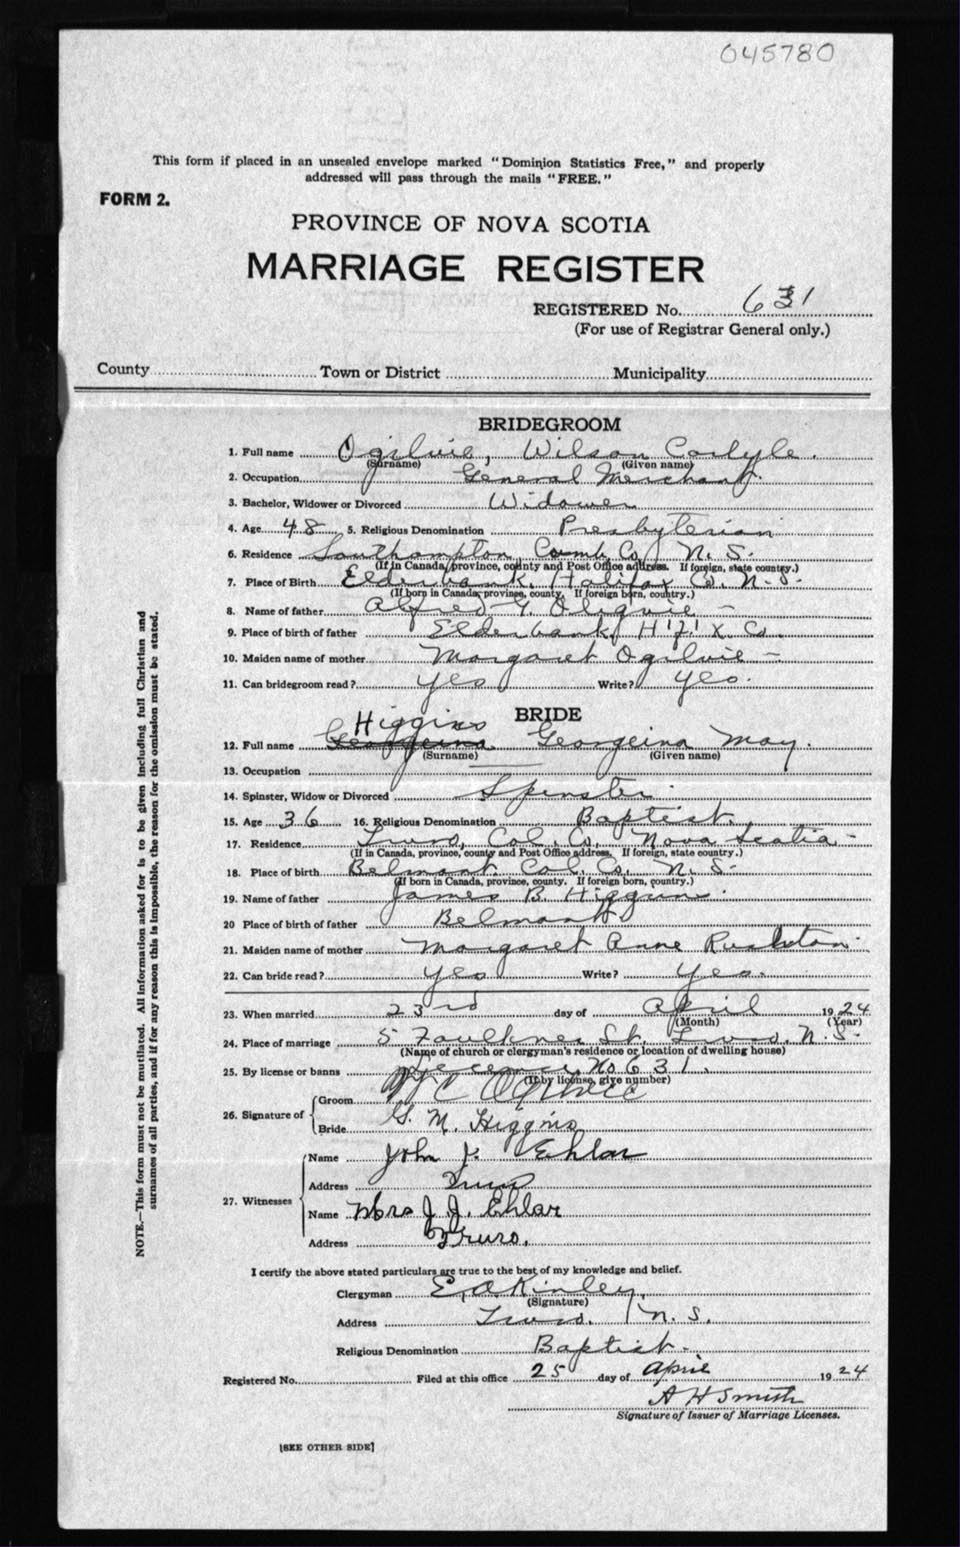 045780
This form if placed in an unsealed envelope marked "Dominion Statistics Free," and properly
addressed will pass through the mails "FREE."
FORM 2.
PROVINCE OF NOVA SCOTIA
MARRIAGE REGISTER
REGISTERED No. 631
(For use of Registrar General only.)
County Town or District Municipality
BRIDEGROOM
1. Full name Ogilvie, Wilson Carlyle.
(Surname) (Given name)
2. Occupation General Merchant.
3. Bachelor, Widower or Divorced Widower
4. Age 48 5. Religious Denomination Presbyterian
6. Residence Southampton Cumb. Co. N. S.
(If in Canada, province, county and Post Office address. If foreign, state country.)
7. Place of Birth Elderbank, Halifax Co. N. S.
(If born in Canada, province, county. If foreign born, country.)
8. Name of father Alfred G. Oligvie -
9. Place of birth of father Elderbank, H'f'x. Co.
10. Maiden name of mother Margaret Ogilvie -
11. Can bridegroom read? yes Write? yes.
BRIDE
Higgins
12. Full name Georgeina Georgeina May.
(Surname) (Given name)
13. Occupation
14. Spinster, Widow or Divorced Spinster
15. Age 36 16. Religious Denomination Baptist.
17. Residence Truro, Col. Co. Nova Scotia -
(If in Canada, province, county and Post Office address. If foreign, state country.)
18. Place of birth Belmont Col. Co. N. S.
(If born in Canada, province, county. If foreign born, country.)
19. Name of father James B. Higgins.
20 Place of birth of father Belmont
21. Maiden name of mother Margaret Anne Rushton
22. Can bride read? yes Write? yes.
23. When married 23rd day of April 1924
(Month) (Year)
24. Place of marriage 5 Faulkner St. Truro. N. S.
(Name of church or clergyman's residence or location of dwelling house)
25. By license or banns No. 631.
(If by license, give number)
26. Signature of Groom W C Ogilvie
Bride G. M. Higgins
27. Witnesses Name John J. Ehlar
Address Truro
Name Mrs J. J. Ehlar
Address Truro.
I certify the above stated particulars are true to the best of my knowledge and belief.
Clergyman E. A. Kinley,
(Signature)
Address Truro. N. S.
Religious Denomination Baptist -
Registered No. Filed at this office 25 day of April 1924
A H Smith
Signature of Issuer of Marriage Licenses.
[SEE OTHER SIDE]
NOTE.—This form must not be mutilated. All information asked for is to be given including full Christian and
surnames of all parties, and if for any reason this is impossible, the reason for the omission must be stated.